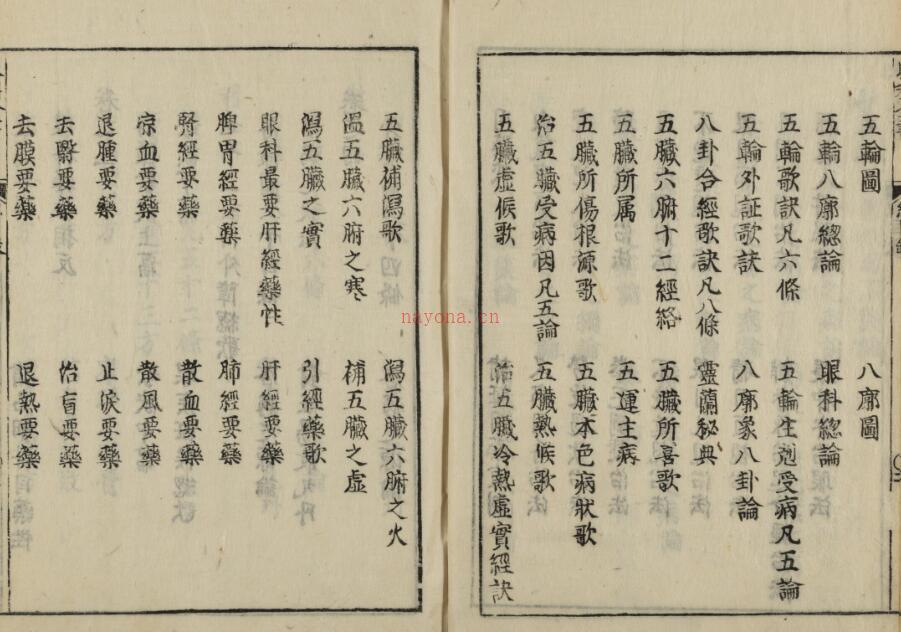 五輪圖
八廓圖
五輪八廓總論
眼科總論
五輪歌訣凡六條
五輪生剋受病凡五論
五輪外証歌訣
八廓象八卦論
八卦合經歌訣凡八條
靈蘭秘典
五臟六腑十二經絡
五臟所喜歌
五臟所属
五運主病
五臟所傷根源歌
五臟本色病狀歌
治五臟受病因凡五論
五臟熱候歌
五臟虛候歌
治五臟冷熱虛實經訣
五臟補瀉歌
瀉五臟六腑之火
溫五臟六腑之寒
補五臟之虛
瀉五臟之實
引經藥歌
眼科最要肝經藥性
肝經要藥
脾胃經要藥
肺經要藥
腎經要藥
散血要藥
凉血要藥
散風要藥
退腫要藥
止淚要藥
去翳要藥
治盲要藥
去膜要藥
退熱要藥
nayona.cn